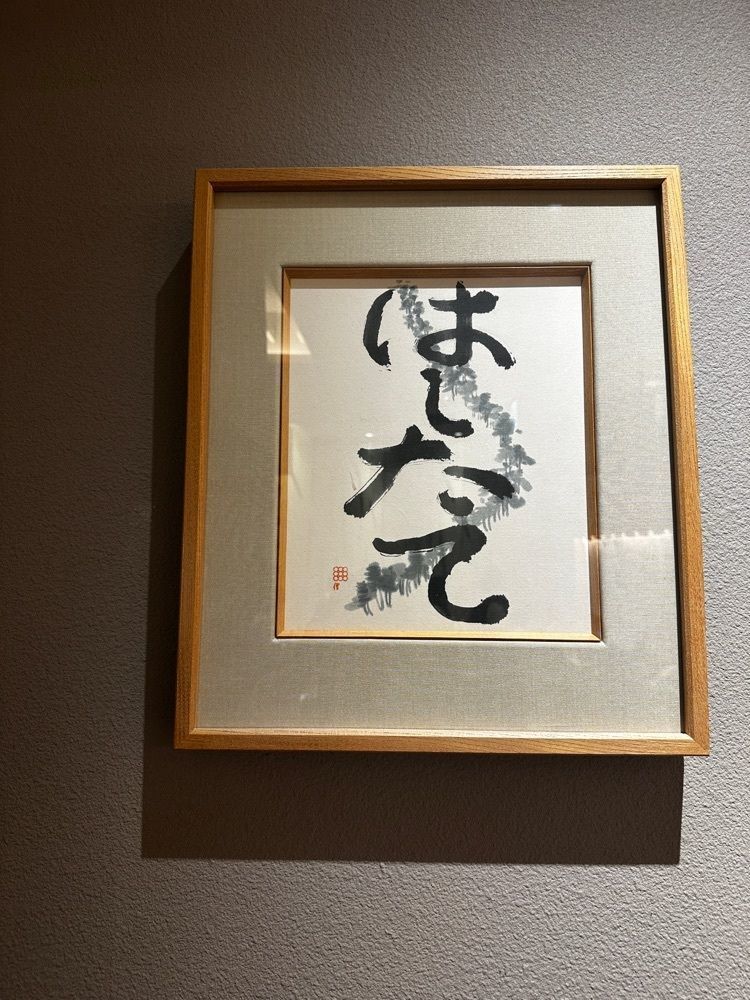 はしたて